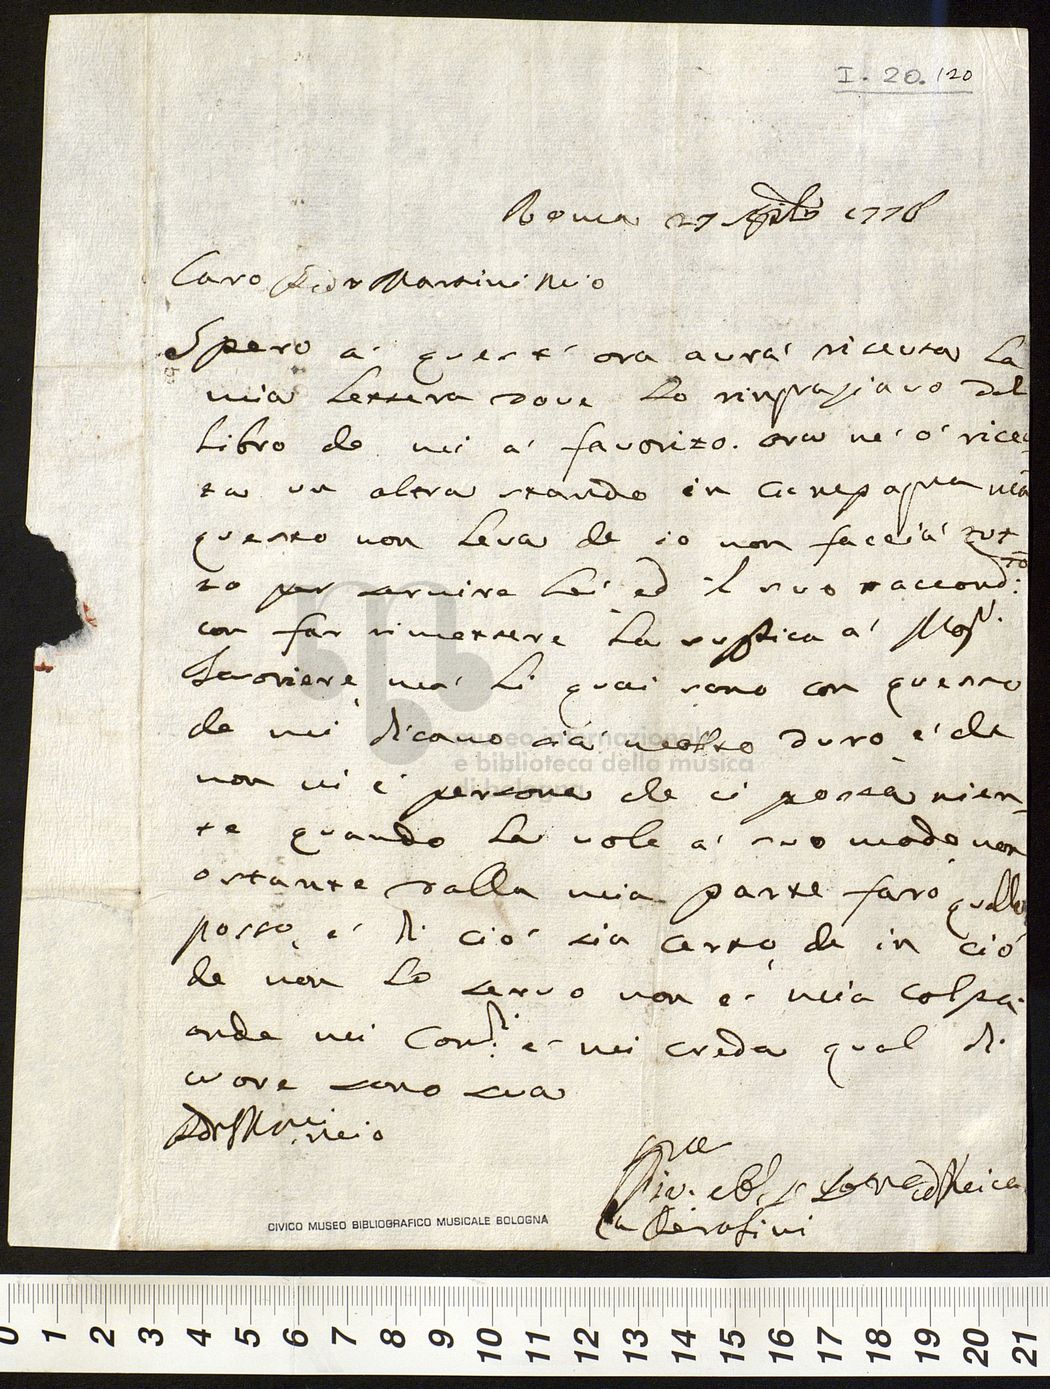 I. 20. 120
Roma 27 Aplē 1776
Caro Pdr Martini Mio
Spero a' quest' ora aura' riceuta La
mia Lettera doue Lo ringraziauo del
Libro che mi a' favorito. ora ne' o' riceu
ta un altra stando in Campagna ma
questo non Leva che io non faccia' tut
to per seruire Lei ed il suo raccond:
con far rimettere La supplica a' Mosr.
me' Li quai sono con questo
che mi dicano sia' molto duro e' che
non ui e' persone che ci possa nien
te quando La vole a' suo modo non
ostante dalla mia parte faro' quello
posso, e' di cio' sia certo, che in cio'
che non Lo seruo non e' mia colpa.
onde mi Comdi: e' mi creda qual di
core sono sua
Pdr Mio
Serafini
museo internazionale
e biblioteca della musica
di bologna
CIVICO MUSEO BIBLIOGRAFICO MUSICALE BOLOGNA
0 1 2 3 4 5 6 7 8 9 10 11 12 13 14 15 16 17 18 19 20 21